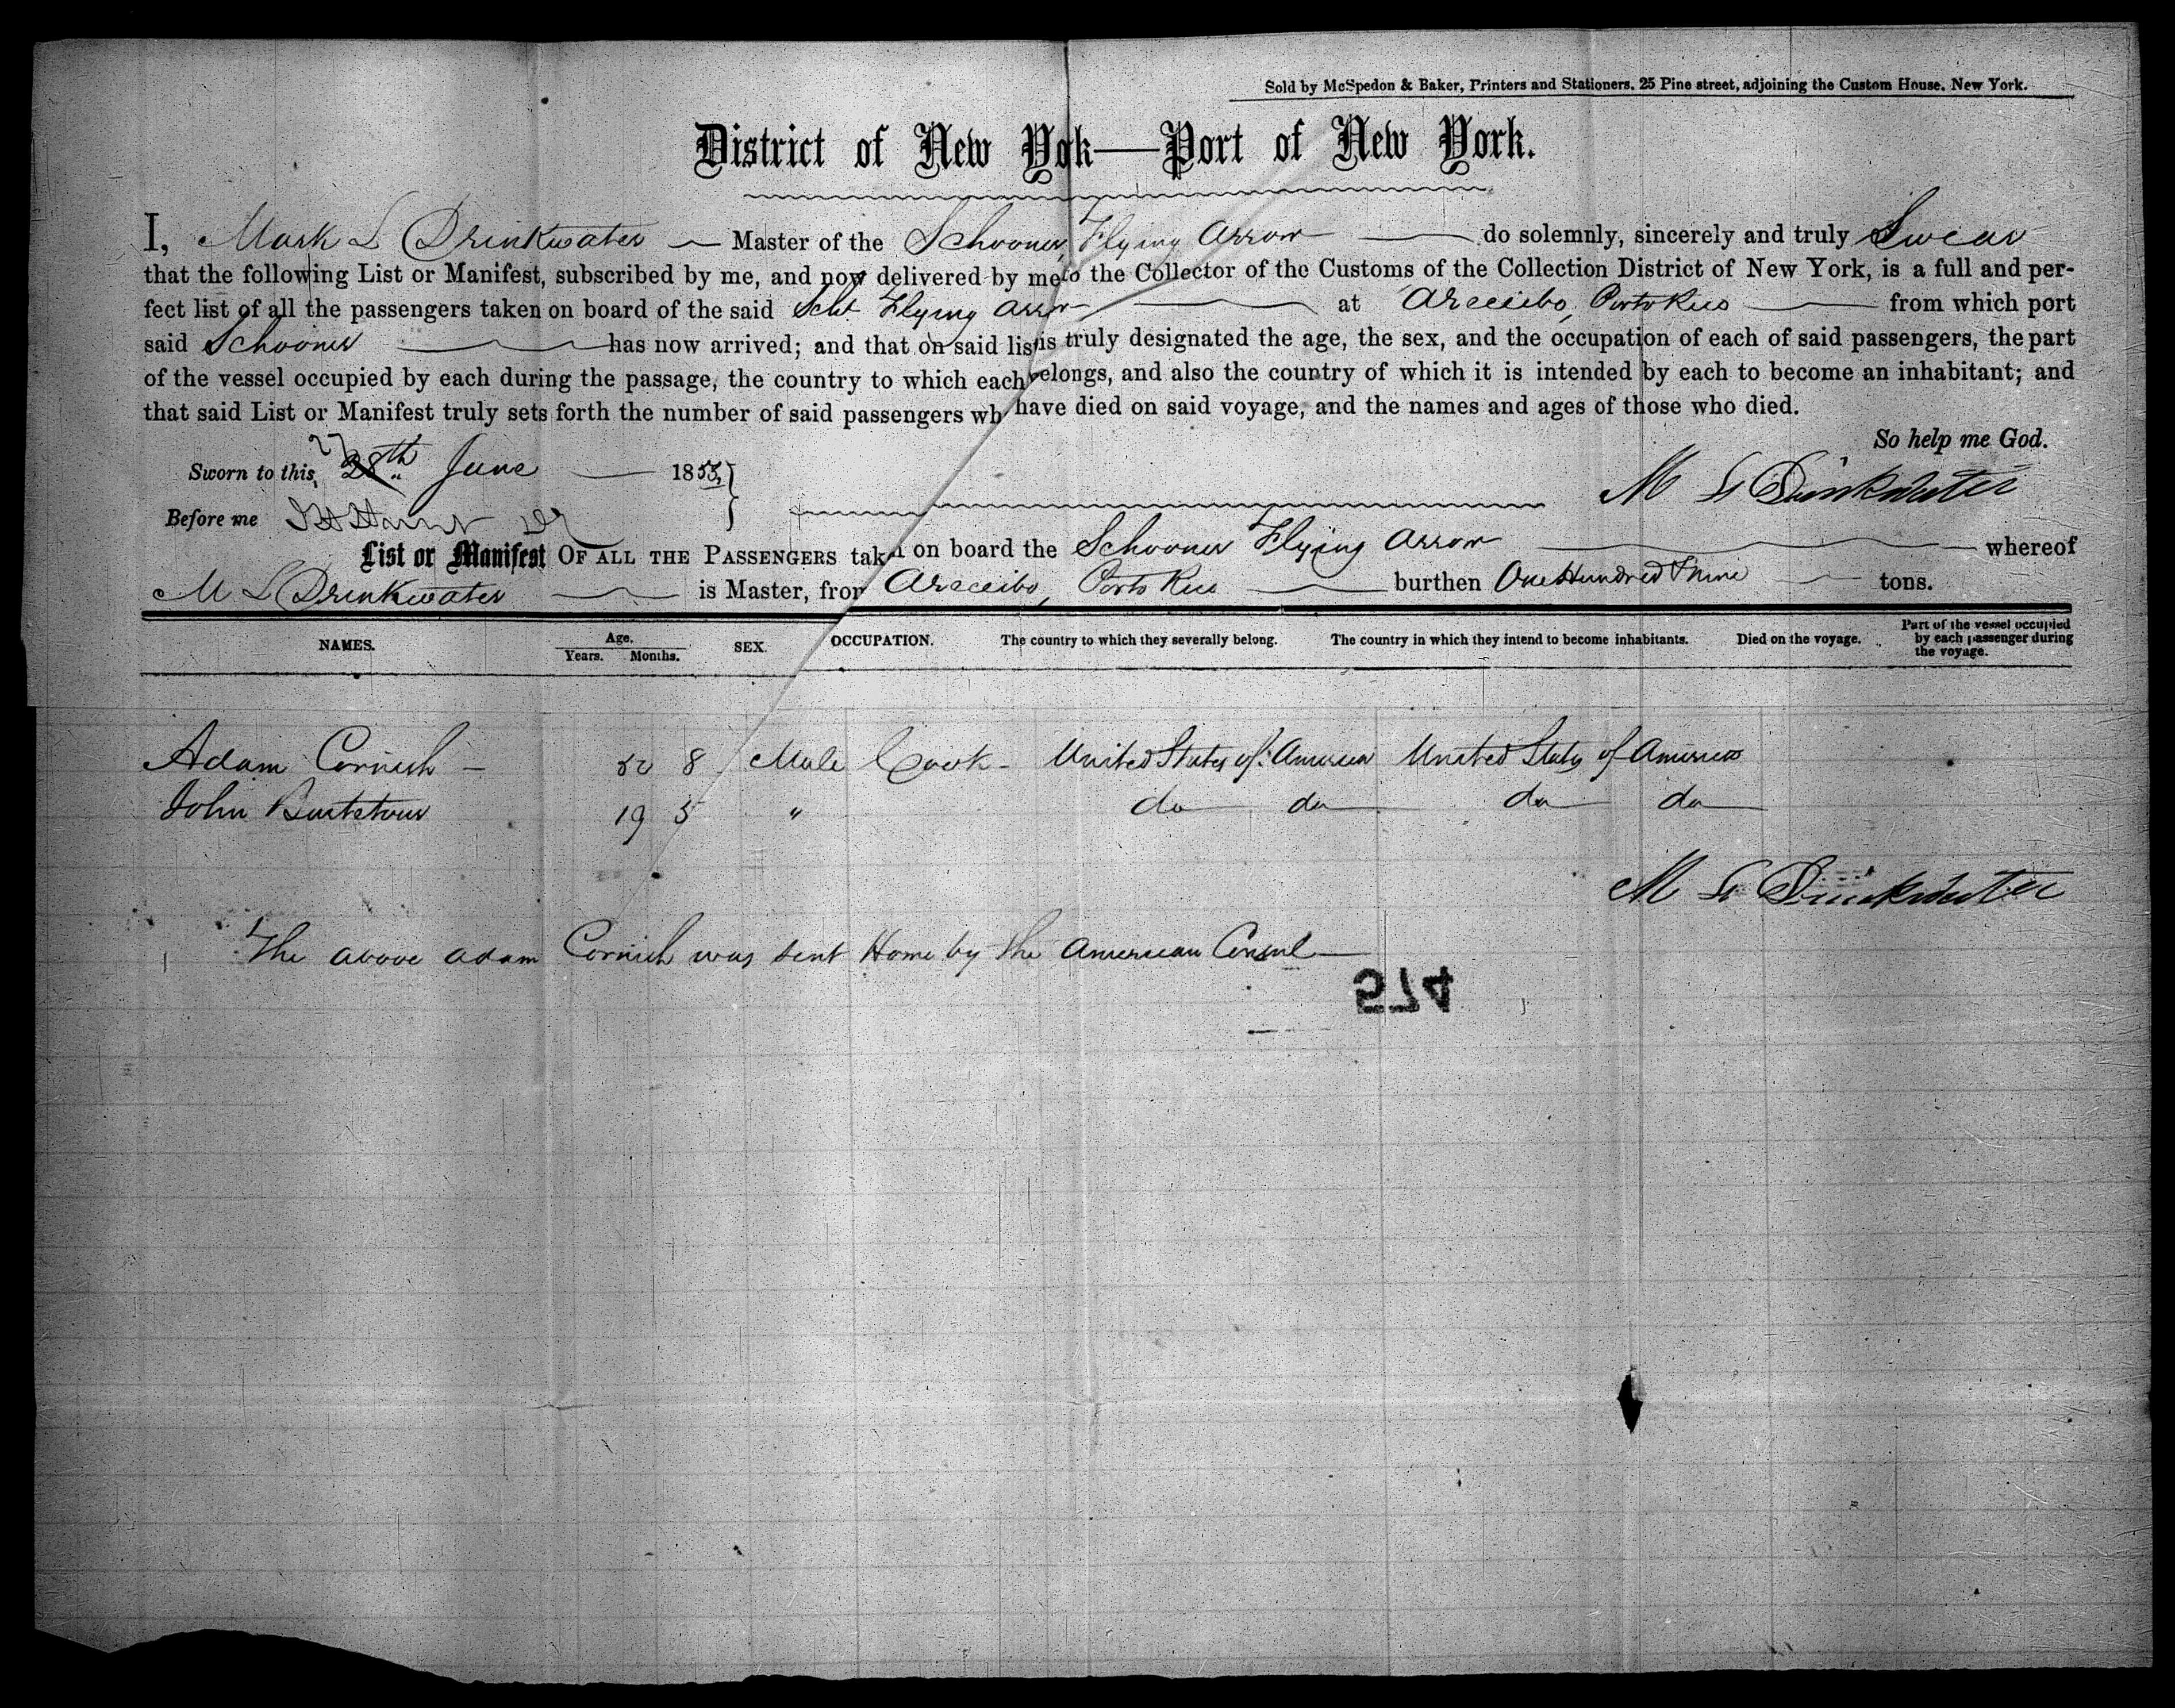 Sold by McSpedon & Baker, Printers and Stationers, 25 Pine street, adjoining the Custom House, New York.
District of New Yok—Port of New York.
I, Mark L Drinkwater Master of the Schooner Flying Arrow do solemnly, sincerely and truly Swear
that the following List or Manifest, subscribed by me, and now delivered by me to the Collector of the Customs of the Collection District of New York, is a full and per-
fect list of all the passengers taken on board of the said Schr Flying Arrow at Areceibo, Porto Rico from which port
said Schooner has now arrived; and that on said list is truly designated the age, the sex, and the occupation of each of said passengers, the part
of the vessel occupied by each during the passage, the country to which each belongs, and also the country of which it is intended by each to become an inhabitant; and
that said List or Manifest truly sets forth the number of said passengers wh have died on said voyage, and the names and ages of those who died.
So help me God.
Sworn to this 28th 27 June 1855,
M L Drinkwater
Before me
List or Manifest OF ALL THE PASSENGERS taken on board the Schooner Flying Arrow whereof
M L Drinkwater is Master, from Areceibo, Porto Rico burthen One Hundred & nine tons.
NAMES. Age. Years. Months. SEX. OCCUPATION. The country to which they severally belong. The country in which they intend to become inhabitants. Died on the voyage. Part of the vessel occupied by each passenger during the voyage.
Adam Cornish - 8 Male Cook - United States of America United States of America
John 19 5 " do do do do
M L Drinkwater
The above Adam Cornish was sent Home by the American Consul
574